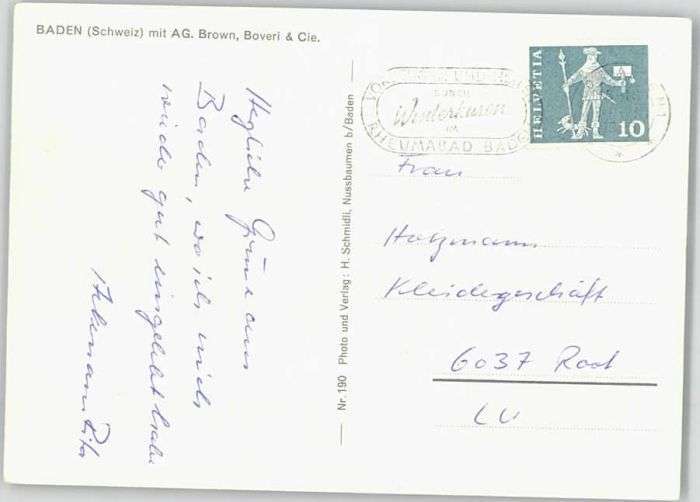 BADEN (Schweiz) mit AG. Brown, Boveri & Cie.
Herzliche Grüsse aus
Baden, wo ich mich
wieder gut eingelebt habe
Nr. 190 Photo und Verlag: H. Schmidli, Nussbaumen b/Baden
DURCH
Winterkuren
IM
RHEUMABAD BADEN
HELVETIA
10
Frau
Holzmann
Kleidergeschäft
6037 Root
LU